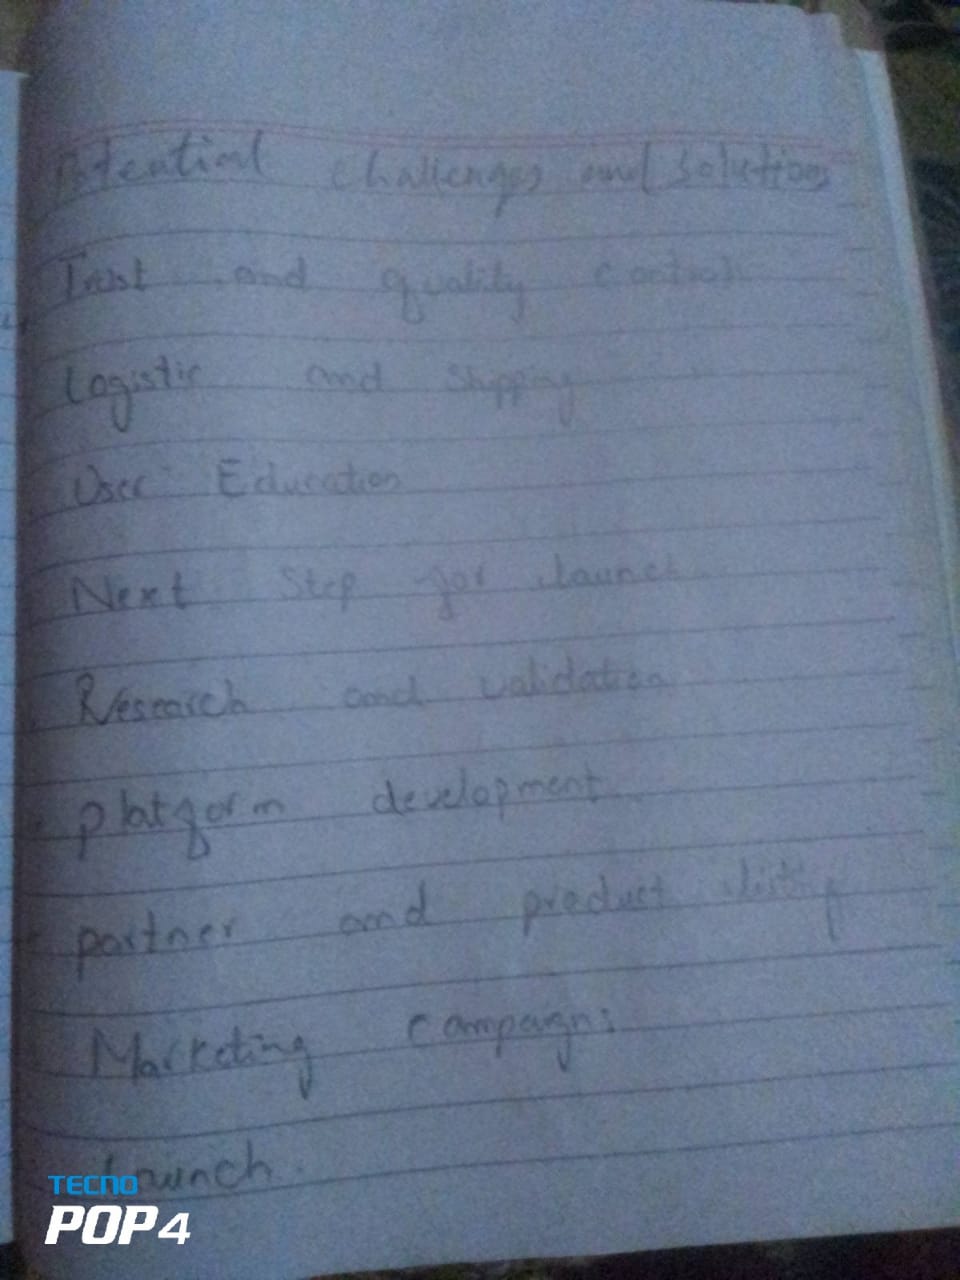 Potential challenges and solutions
Trust and quality control
Logistic and Shipping
User Education
Next Step for launch
Research and validation
platform development
partner and product listing
Marketing campaign:
Launch.
TECNO
POP 4